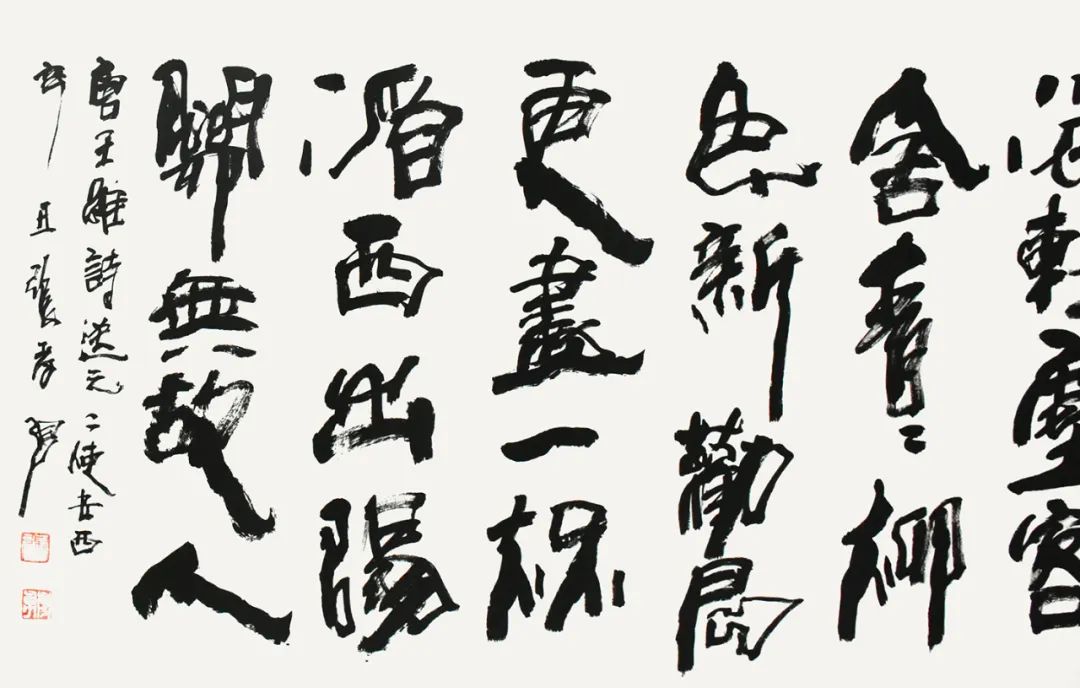 浥輕塵客
舍青〻柳
色新勸君
更盡一杯
酒西出陽
關無故人
唐王維詩送元二使安西
辛丑張